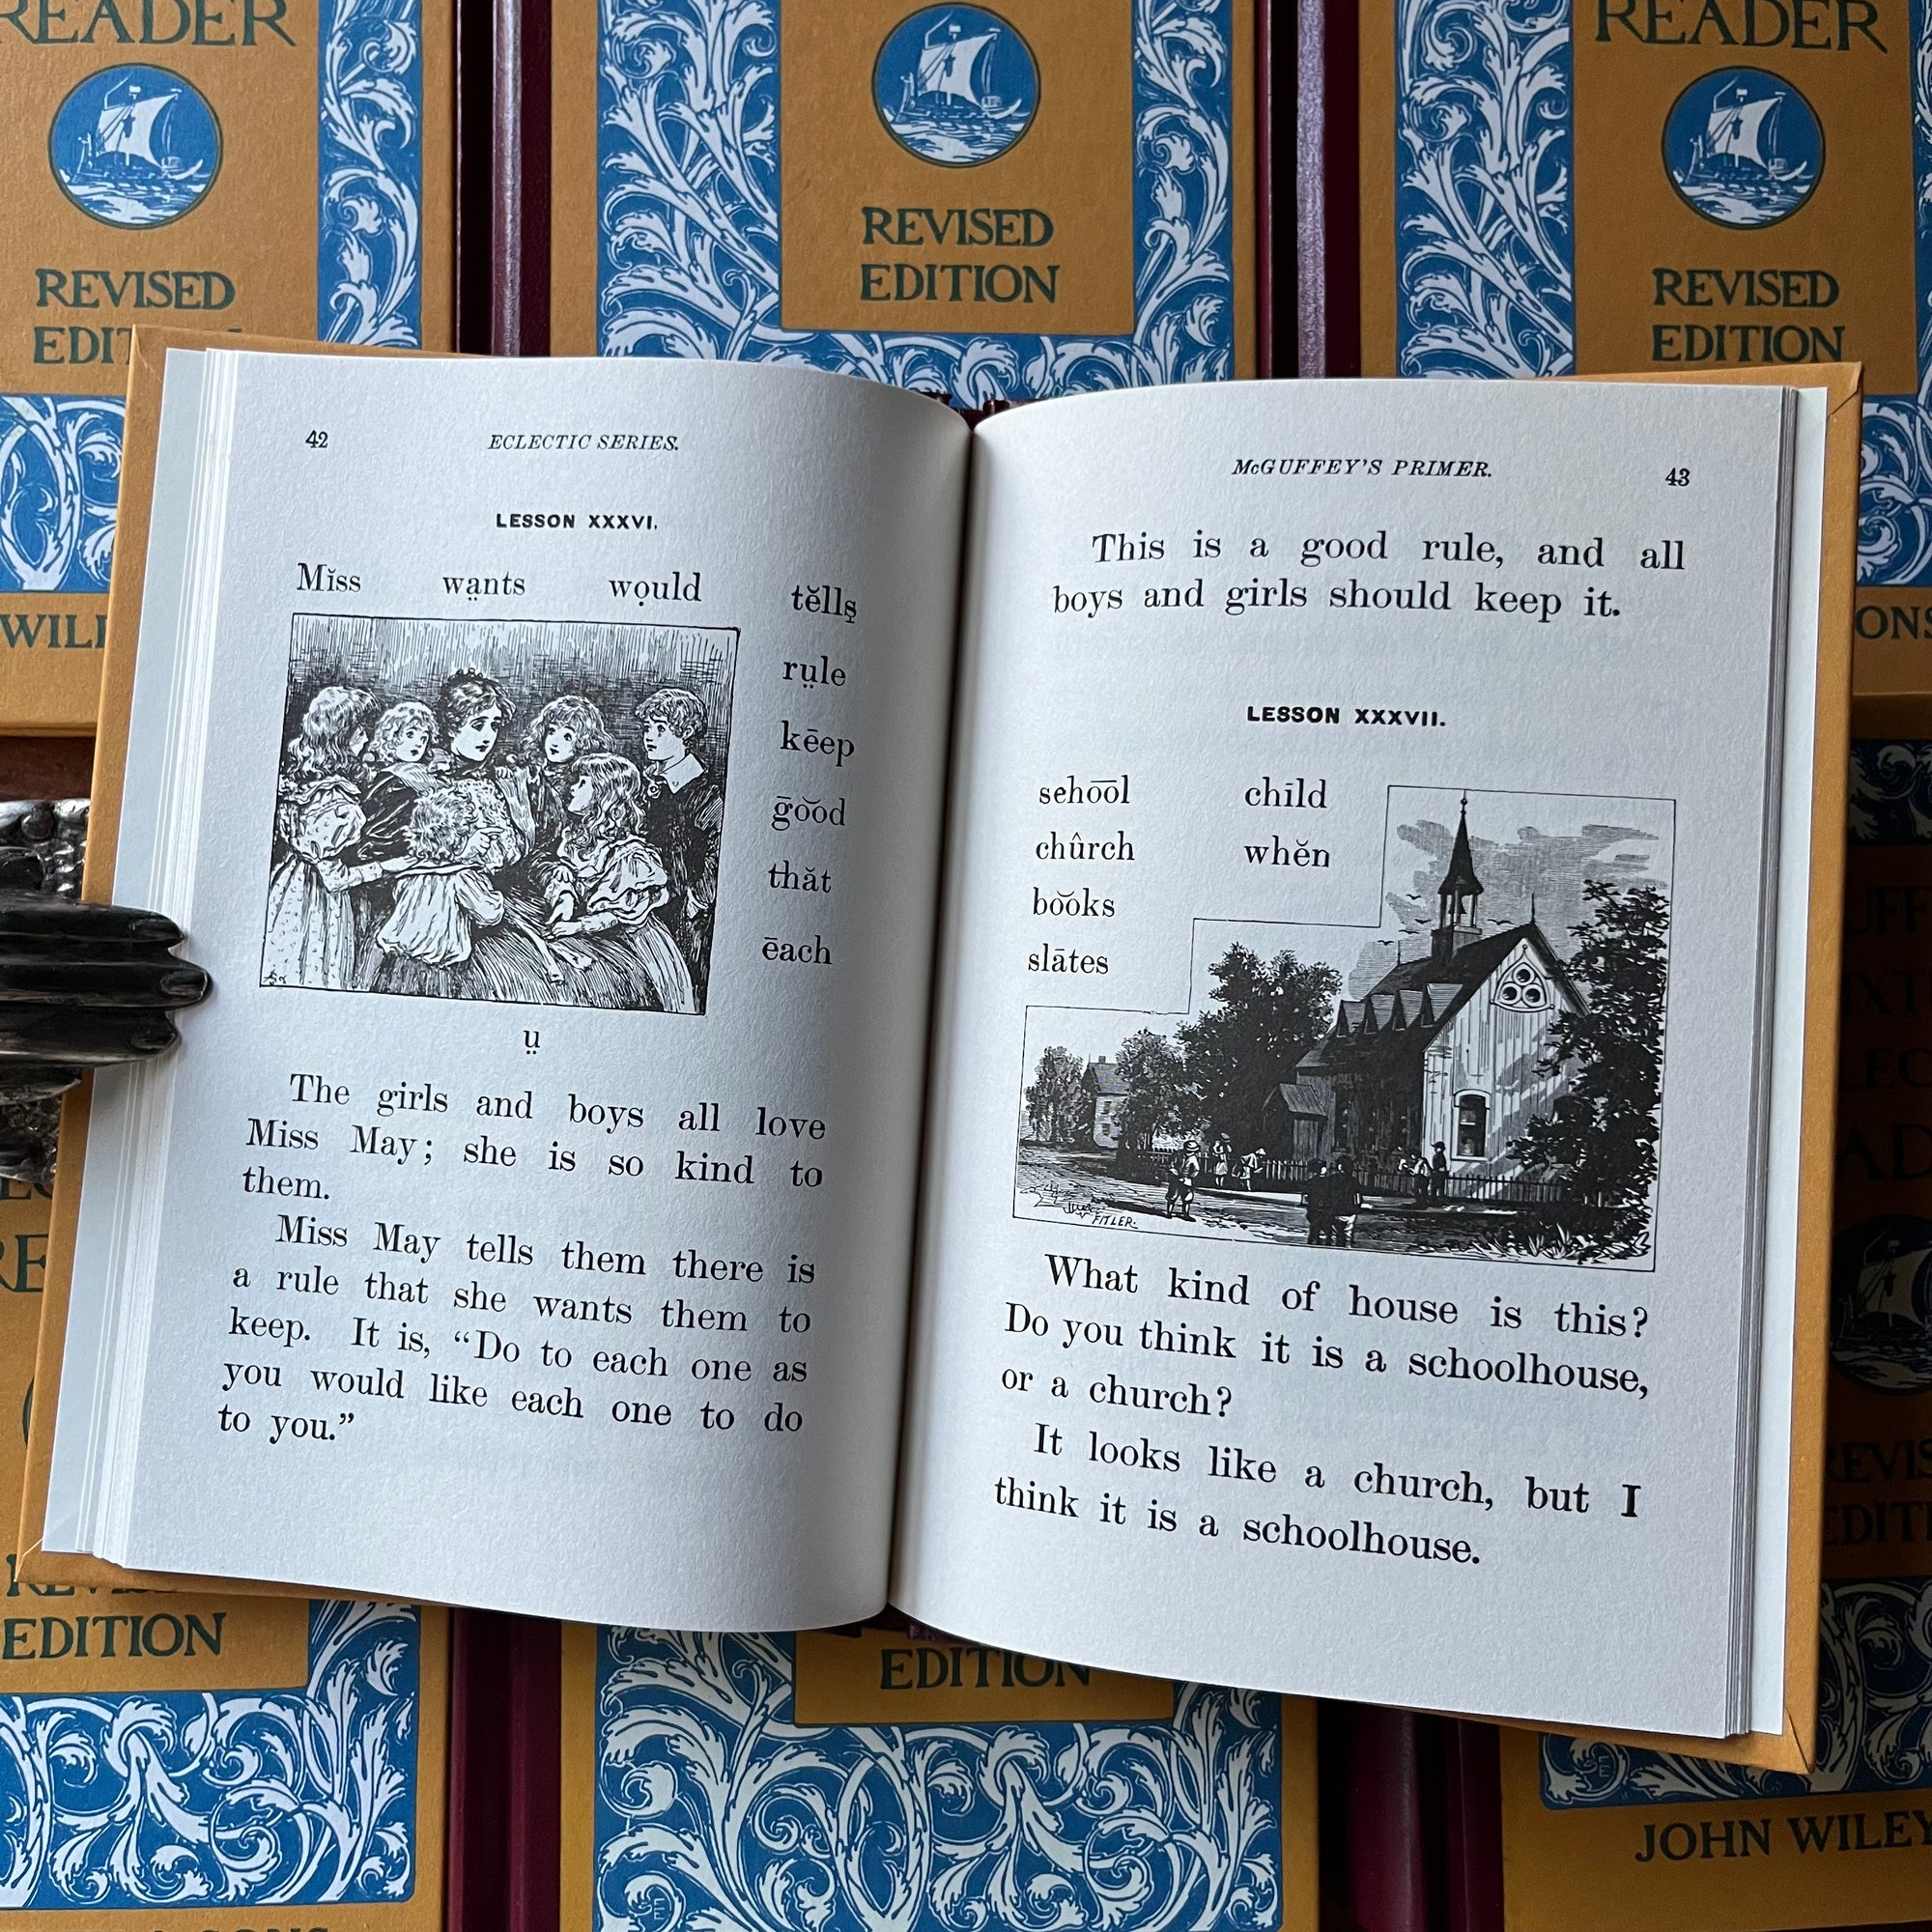 READER
READER
REVISED
EDITION
REVISED
REVISED
EDITION
42
ECLECTIC SERIES.
LESSON XXXVI.
Mĭss wa̤nts wọuld tĕlls̝
rṳle
kēep
ḡo͝od
thăt
ēach
ṳ
The girls and boys all love
Miss May; she is so kind to
them.
Miss May tells them there is
a rule that she wants them to
keep. It is, “Do to each one as
you would like each one to do
to you.”
McGUFFEY'S PRIMER.
43
This is a good rule, and all
boys and girls should keep it.
LESSON XXXVII.
seho͞ol chīld
chûrch whĕn
bo͝oks
slātes
FITLER.
What kind of house is this?
Do you think it is a schoolhouse,
or a church?
It looks like a church, but I
think it is a schoolhouse.
EDITION
EDITION
JOHN WILEY